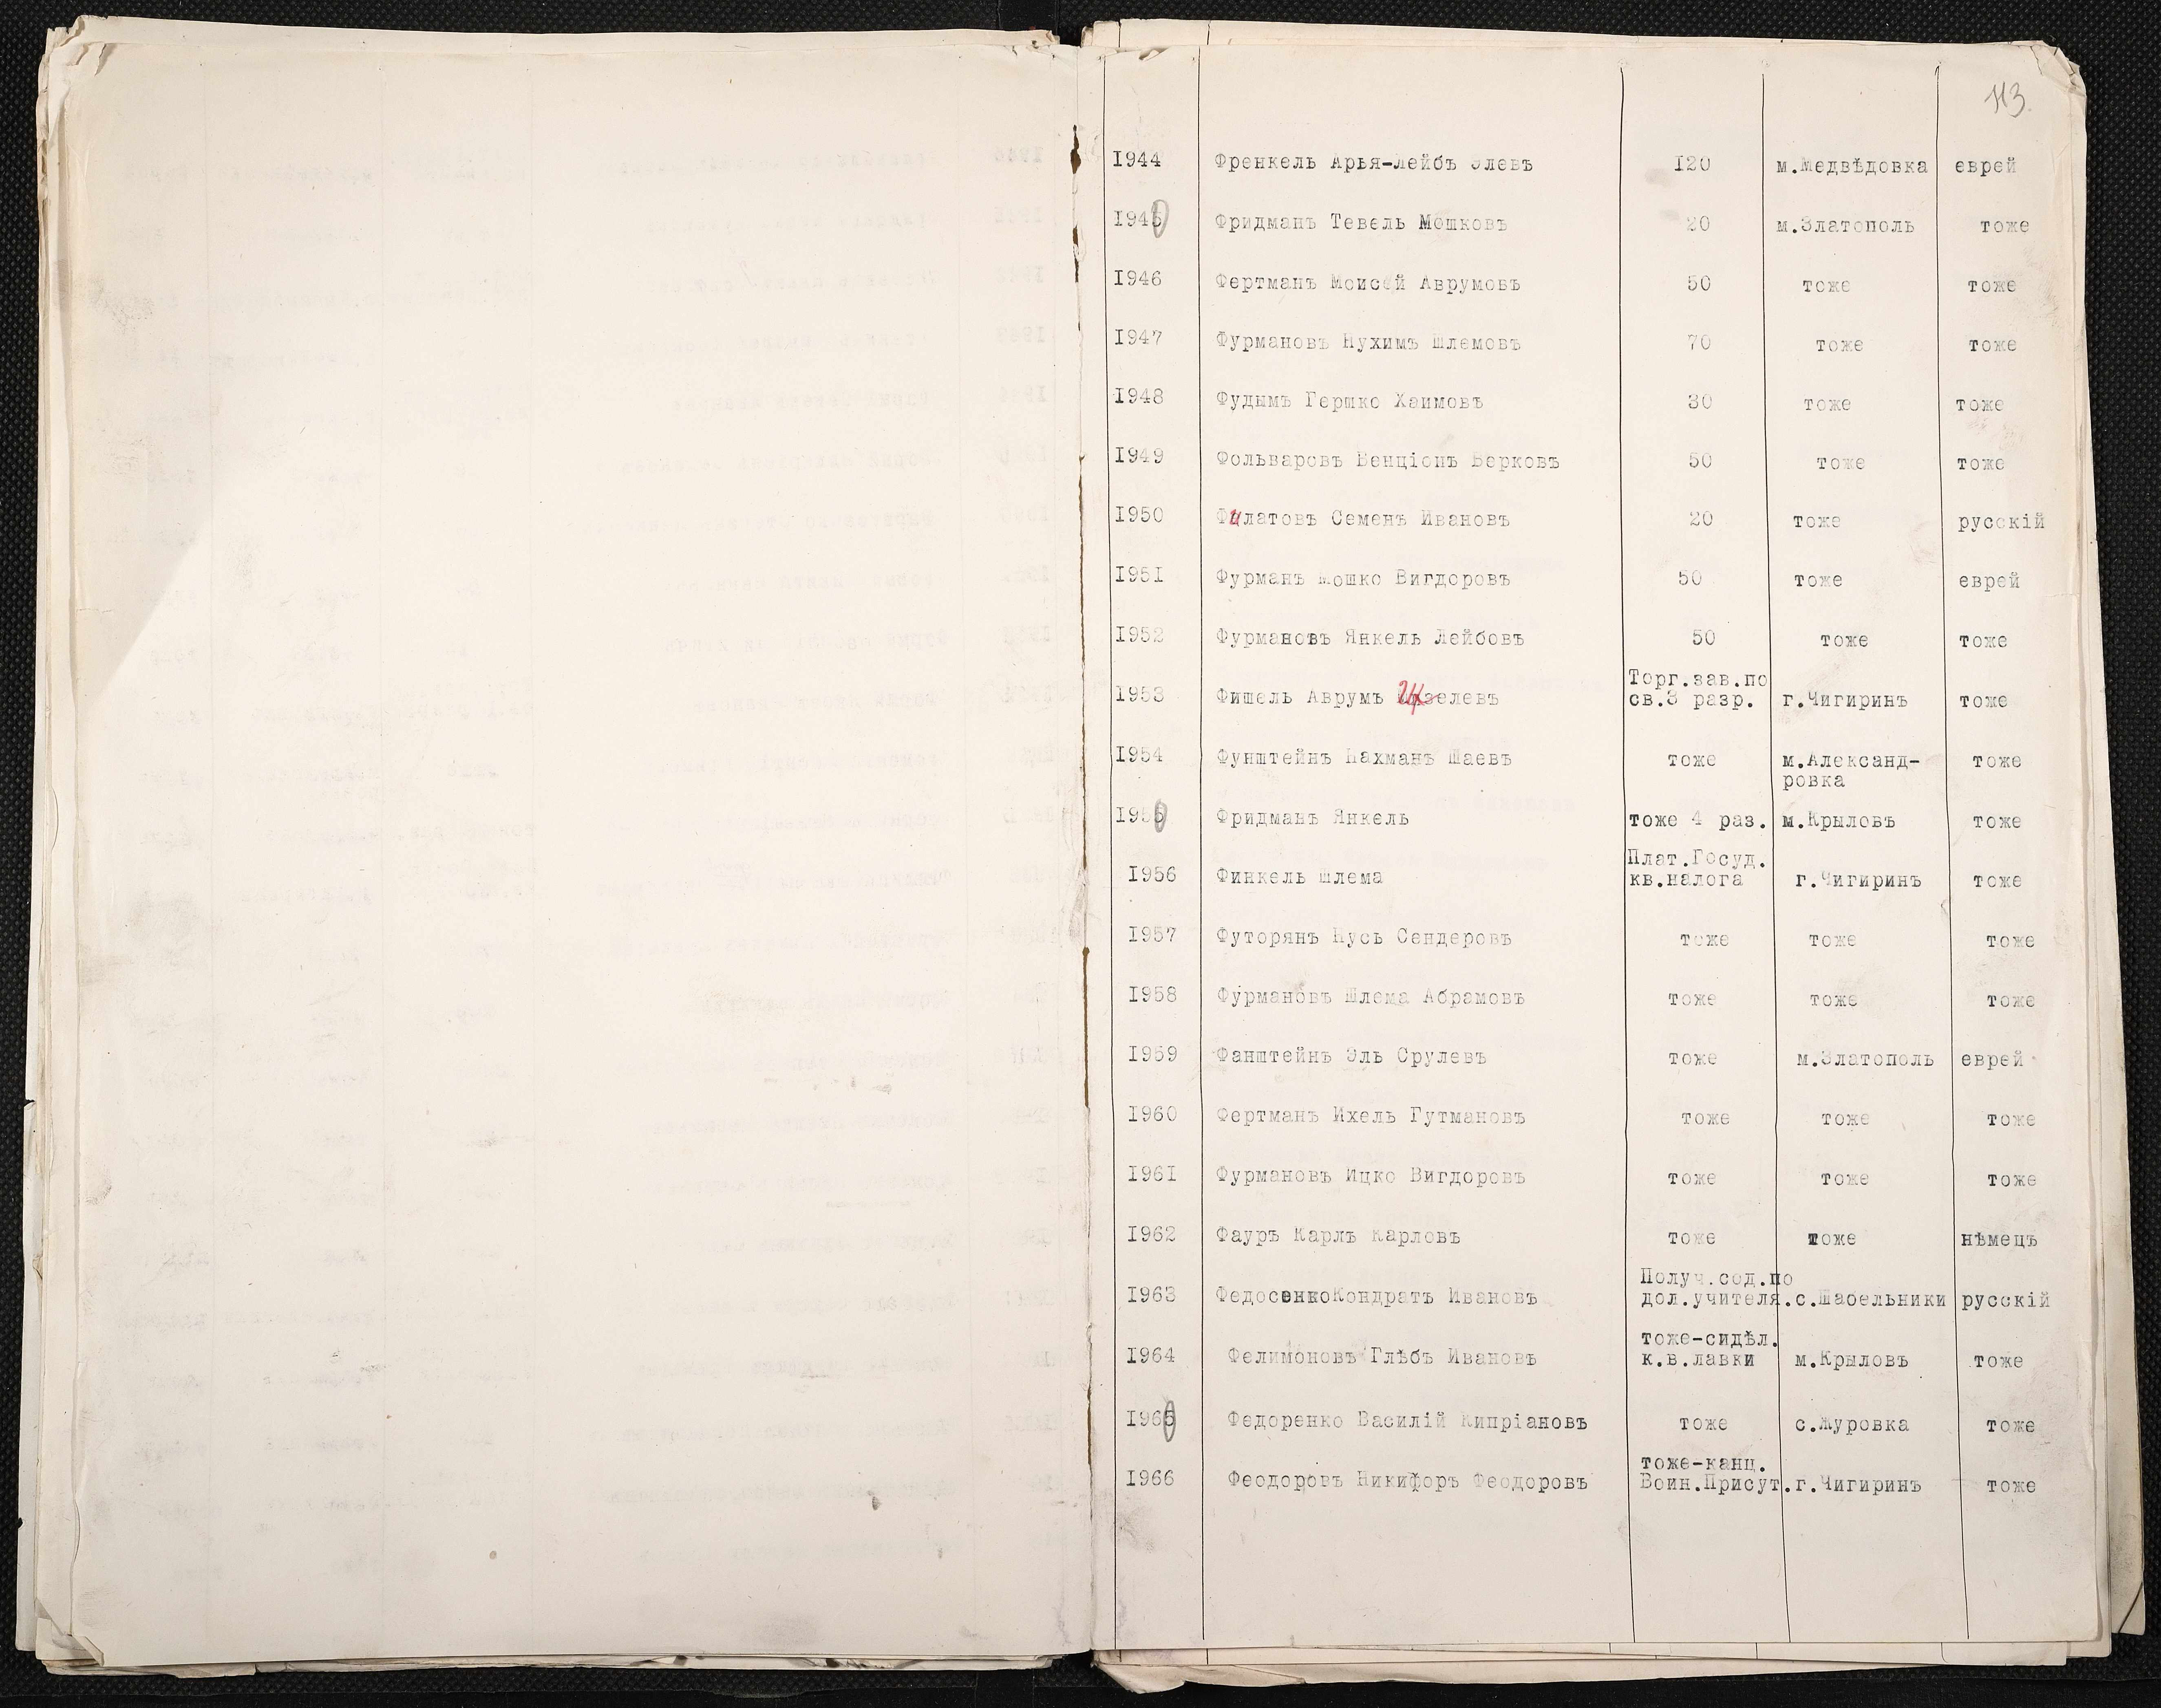 113.
1944 Френкель Арья-Лейбъ Элевъ 120 м.Медвѣдовка еврей
1945 Фридманъ Тевель Мошковъ 20 м.Златополь тоже
1946 Фертманъ Моисей Аврумовъ 50 тоже тоже
1947 Фурмановъ Нухимъ Шлемовъ 70 тоже тоже
1948 Фудымъ Гершко Хаимовъ 30 тоже тоже
1949 Фольваровъ Бенціонъ Берковъ 50 тоже тоже
1950 Филатовъ Семенъ Ивановъ 20 тоже русскій
1951 Фурманъ Мошко Вигдоровъ 50 тоже еврей
1952 Фурмановъ Янкель Лейбовъ 50 тоже тоже
Торг.зав.по
1953 Фишель Аврумъ св.3 разр. г.Чигиринъ тоже
1954 Фунштейнъ Нахманъ Шаевъ тоже м.Александ- тоже
ровка
1955 Фридманъ Янкель тоже 4 раз. м.Крыловъ тоже
Плат.Госуд.
1956 Финкель Шлема кв.налога г.Чигиринъ тоже
1957 Футорянъ Нусь Сендеровъ тоже тоже тоже
1958 Фурмановъ Шлема Абрамовъ тоже тоже тоже
1959 Фанштейнъ Эль Срулевъ тоже м.Златополь еврей
1960 Фертманъ Ихель Гутмановъ тоже тоже тоже
1961 Фурмановъ Ицко Вигдоровъ тоже тоже тоже
1962 Фауръ Карлъ Карловъ тоже тоже нѣмецъ
Получ.сод.по
1963 ФедосенкоКондратъ Ивановъ дол.учителя. с.Шабельники русскій
тоже-сидѣл.
1964 Фелимоновъ Глѣбъ Ивановъ к.в.лавки м.Крыловъ тоже
1965 Федоренко Василій Кипріановъ тоже с.Журовка тоже
тоже-канц.
1966 Феодоровъ Никифоръ Феодоровъ Воин.Присут. г.Чигиринъ тоже